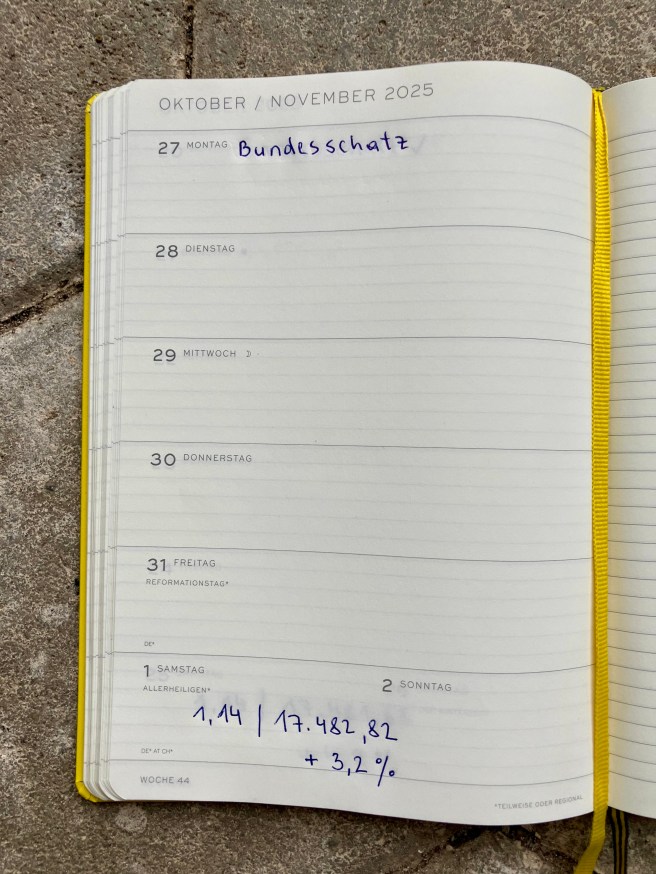 OKTOBER / NOVEMBER 2025
27 MONTAG Bundesschatz
28 DIENSTAG
29 MITTWOCH
30 DONNERSTAG
31 FREITAG
REFORMATIONSTAG*
DE*
1 SAMSTAG
ALLERHEILIGEN*
2 SONNTAG
1,14 | 17.482,82
+ 3,2 %
DE* AT CH*
WOCHE 44
*TEILWEISE ODER REGIONAL